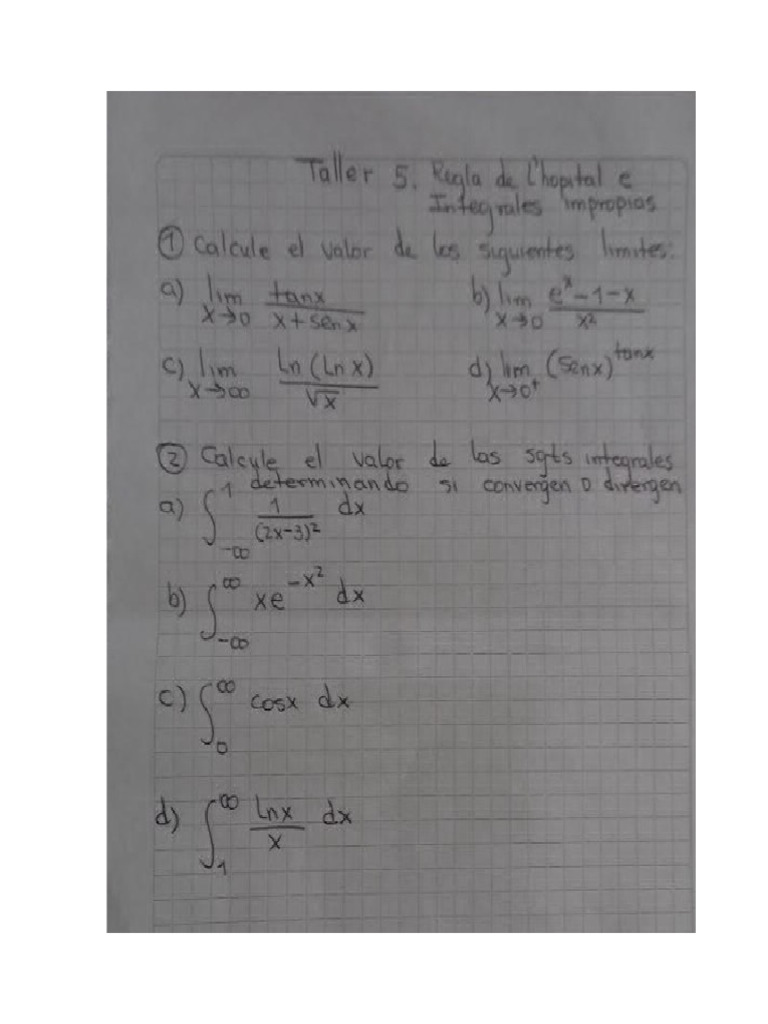 Taller 5. Regla de l'hopital e
Integrales impropias
① Calcule el valor de los siguientes limites:
a) lim x→0 tanx / (x + senx)    b) lim x→0 (e^x − 1 − x) / x²
c) lim x→∞ Ln (Ln x) / √x    d) lim x→0⁺ (senx)^tanx
② Calcule el valor de las sgts integrales
determinando si convergen o divergen
a) ∫_{-∞}^{1} 1 / (2x−3)² dx
b) ∫_{-∞}^{∞} xe^{−x²} dx
c) ∫_{0}^{∞} cosx dx
d) ∫_{1}^{∞} Lnx / x dx